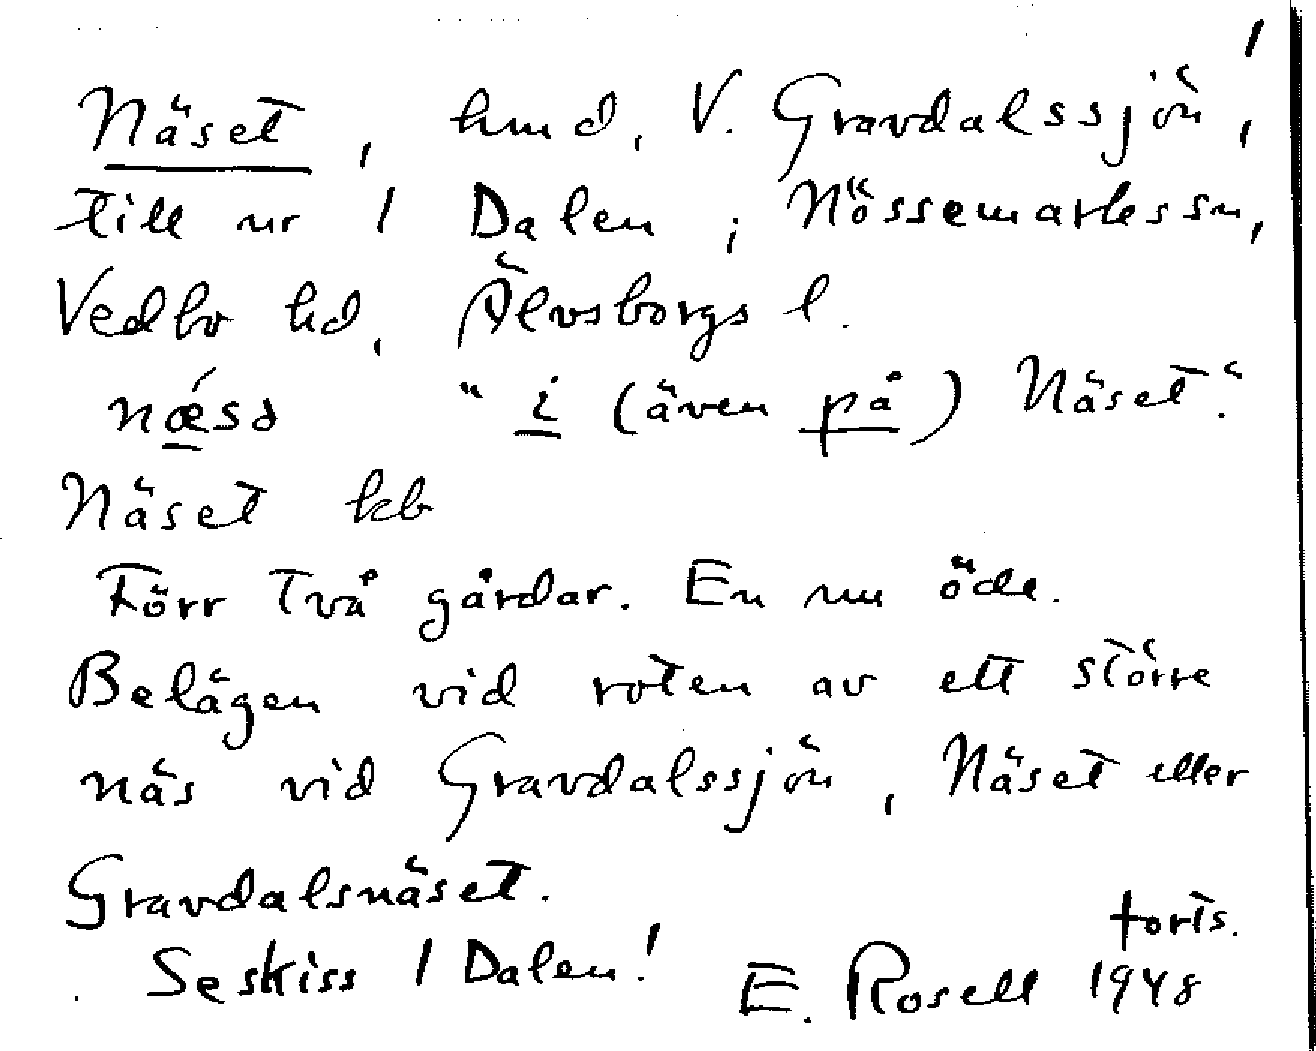 1
Näset, hmd, V. Gravdalssjön,
till nr 1 Dalen; Nössemarks sn,
Vedbo hd, Älvsborgs l.
nǽsə "i (även på) Näset."
Näset kb
Förr två gårdar. En nu öde.
Belägen vid roten av ett större
näs vid Gravdalssjön, Näset eller
Gravdalsnäset.
forts.
Se skiss 1 Dalen! E. Rosell 1948